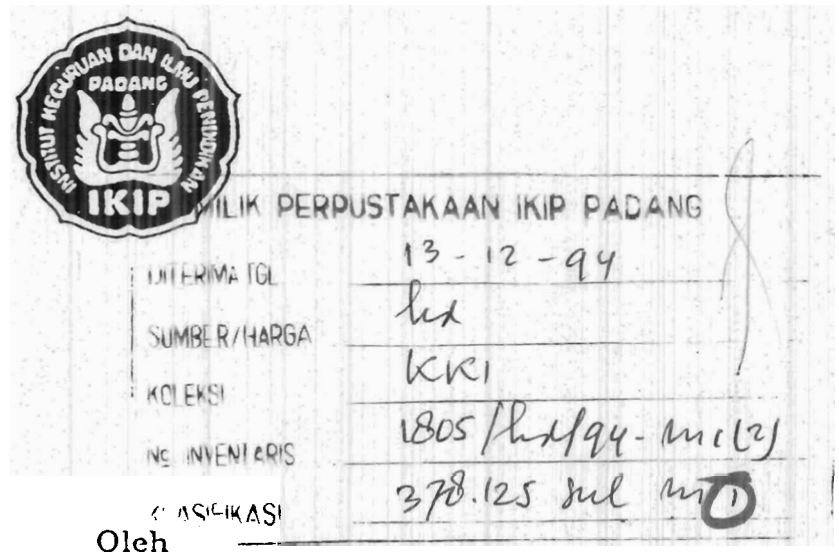 INSTITUT KEGURUAN DAN ILMU PENDIDIKAN
PADANG
IKIP
MILIK PERPUSTAKAAN IKIP PADANG
DITERIMA TGL 13-12-94
SUMBER/HARGA hd
KOLEKSI KKI
NO. INVENTARIS 1805/hd/94-m1(2)
KLASIFIKASI 378.125 Sul m 1
Oleh